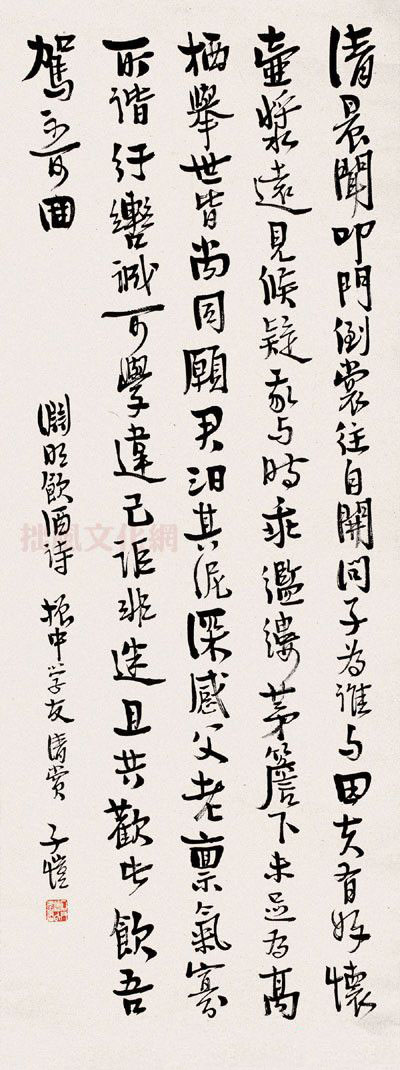 清晨聞叩門倒裳往自開問子為誰与田夫有好懷
壺漿遠見候疑我与時乖襤縷茅簷下未足為高
栖舉世皆尚同願君汩其泥深感父老稟氣寡
所諧紆轡誠可學違己詎非迷且共歡此飲吾
駕不可回
淵明飲酒诗 振中学友清赏 子愷
拙風文化網